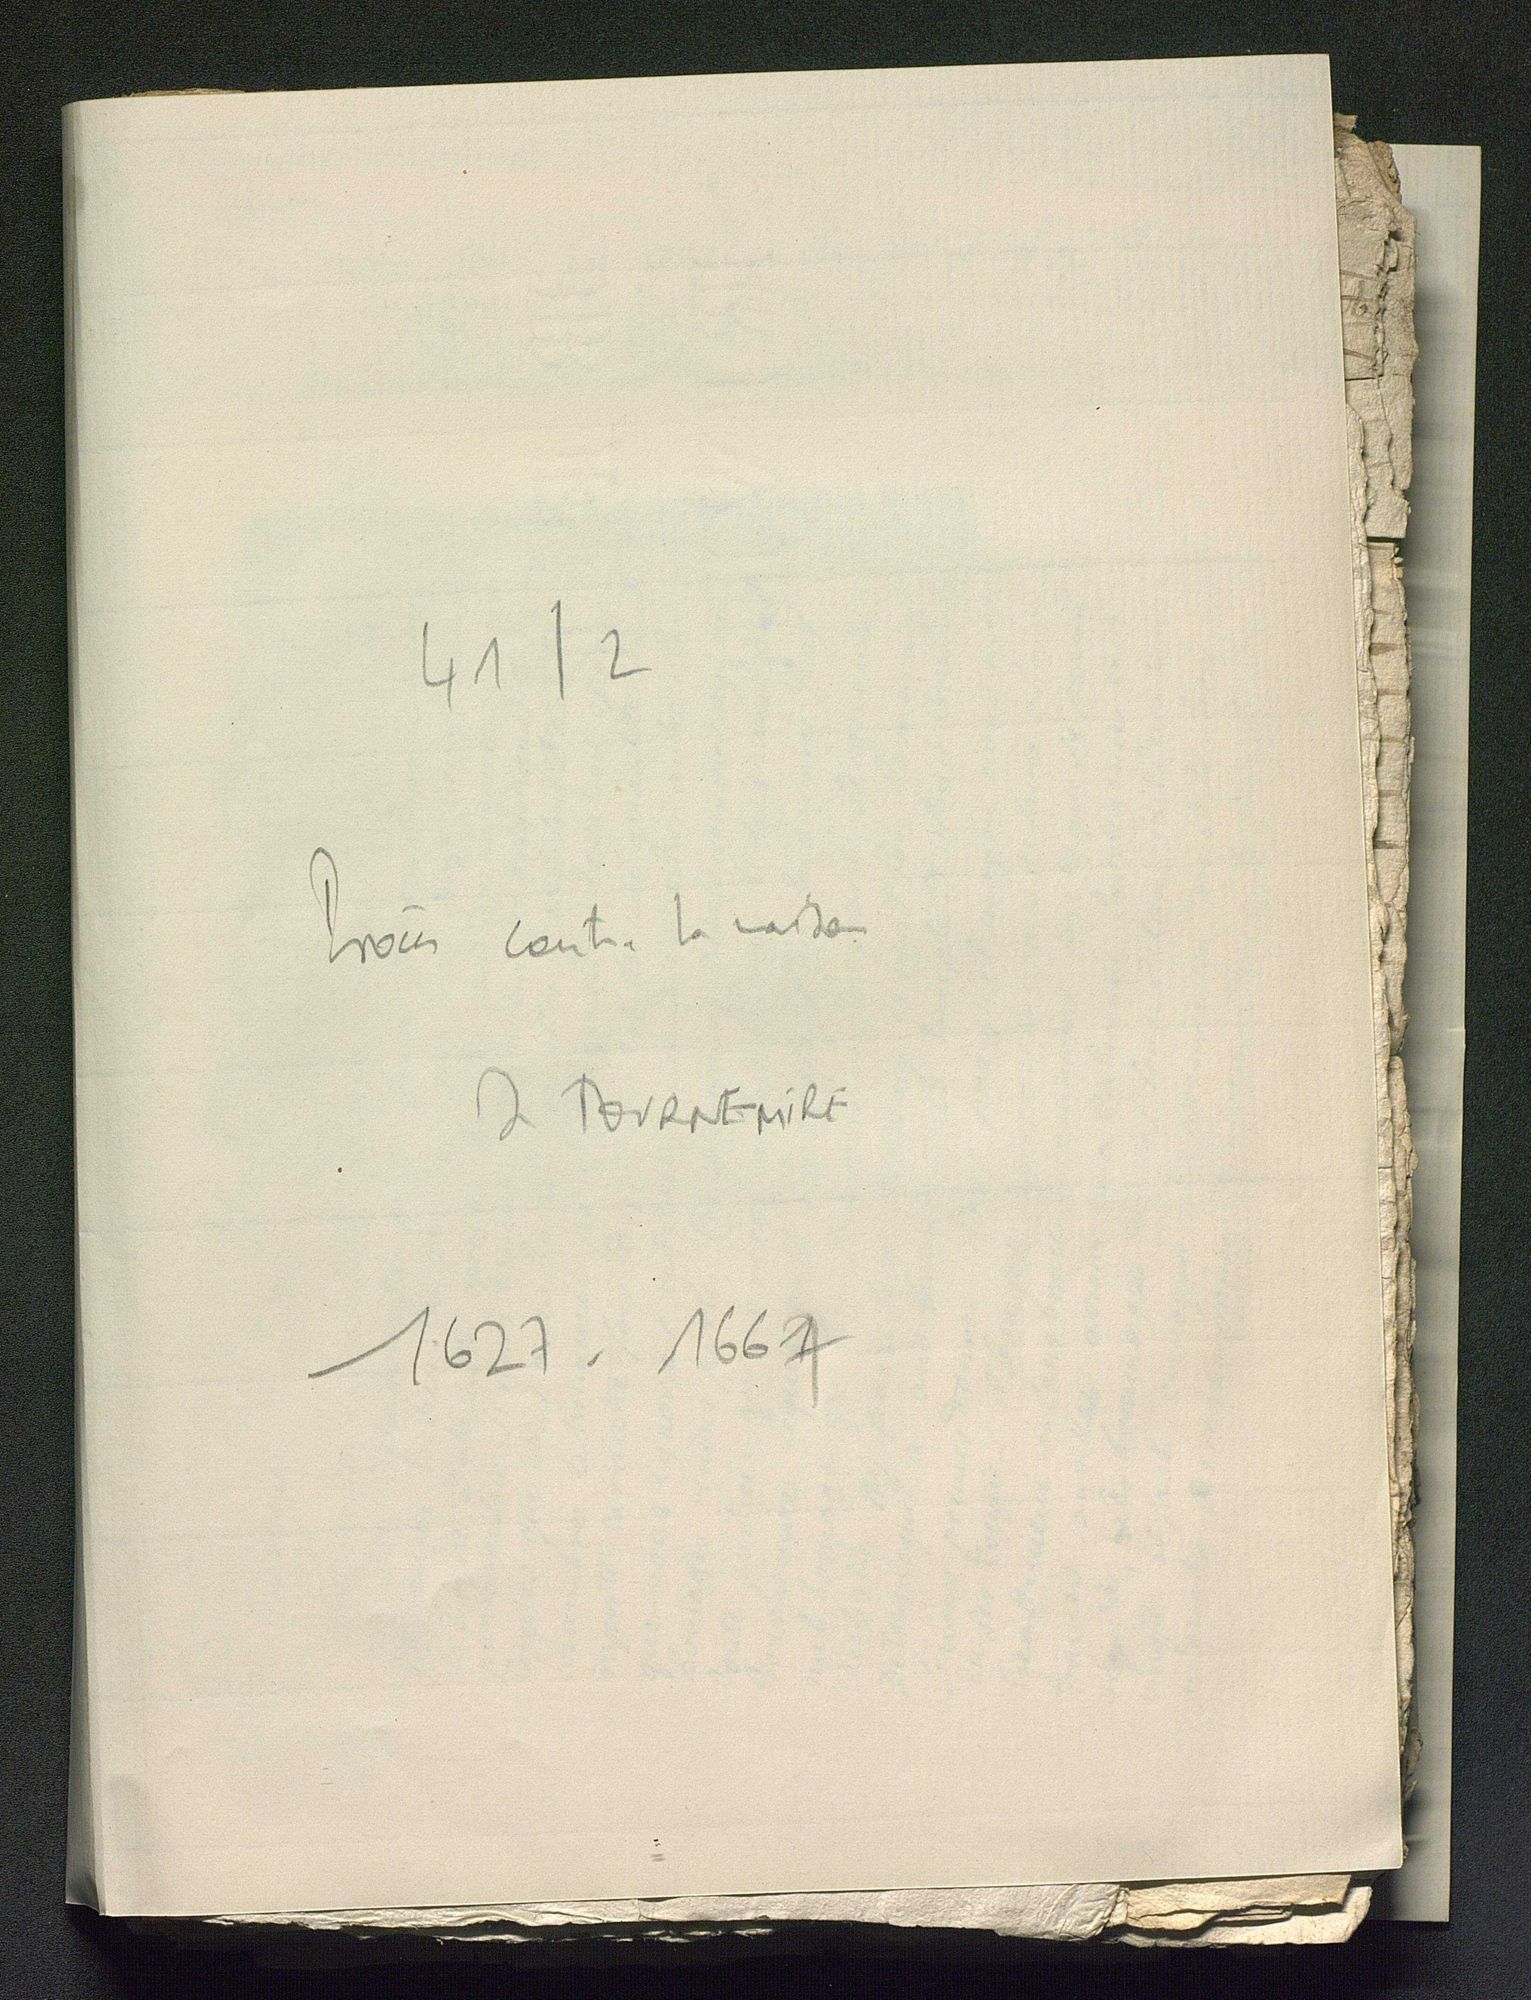 41 | 2
Procès contre la maison
de TOURNEMIRE
1627 - 1667